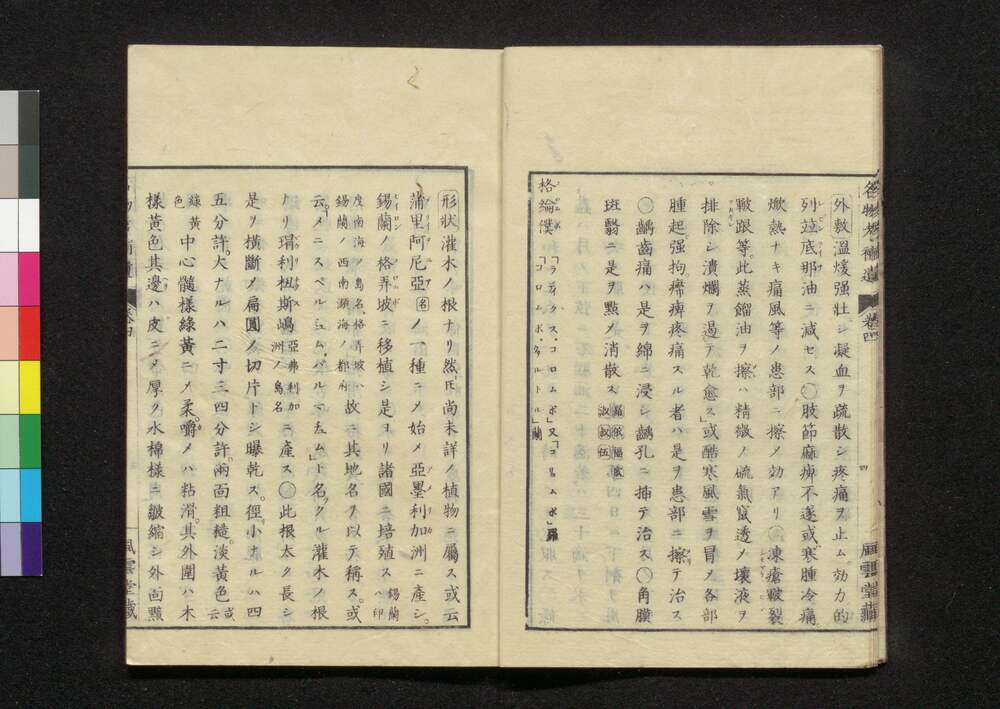 外敷溫煖强壮シ凝血ヲ疏散シ疼痛ヲ止ム効力的
列並底那油ニ減セス○肢節麻痺不遂或寒腫冷痛
焮熱ナキ痛風等ノ患部ニ擦メ効アリ○凍瘡皸裂
皸跟等此蒸餾油ヲ擦ハ精微ノ硫氣竄透ノ壞液ヲ
排除シ潰爛ヲ遏テ乾愈ス或酷寒風雪ヲ冒メ各部
腫起强拘痹痺疼痛スル者ハ是ヲ患部ニ擦テ治ス
○齲齒痛ハ是ヲ綿ニ浸シ齲孔ニ挿テ治ス○角膜
斑翳ニ是ヲ㸃メ消散ス
格綸僕「ラディクス、コロムボ」又「コロムボ」羅
「コロムボ、ウルトル」蘭
形状灌木ノ根ナリ然𪜈尚未詳ノ植物ニ屬ス或云
蒲里阿尼亞名ノ一種ニメ始メ亞墨利加洲ニ産シ
錫蘭ノ格弄坡ニ移植シ是ヨリ諸國ニ培殖ス錫蘭ハ印
度南海ノ島名格弄坡ハ
錫蘭ノ西南瀕海ノ都府故ニ其地名ヲ以テ稱ス或
云メニスペルミュム、パルマチュムト名クル灌木ノ根
ナリ瑁利杻斯嶋亞弗利加洲ノ島名ニ産ス○此根太ク長シ
是ヲ橫斷ノ扁圓ノ切片トシ曝乾ス徑小ナルハ四
五分許大ナルハ二寸三四分許兩面粗糙淡黃色或云
綠黃色中心髓樣綠黃ニメ柔嚼メハ粘滑其外圍ハ木
樣黃色其邊ハ皮ニメ厚ク水棉樣ニ皺縮シ外面黯
卷四
四
風雲堂藏